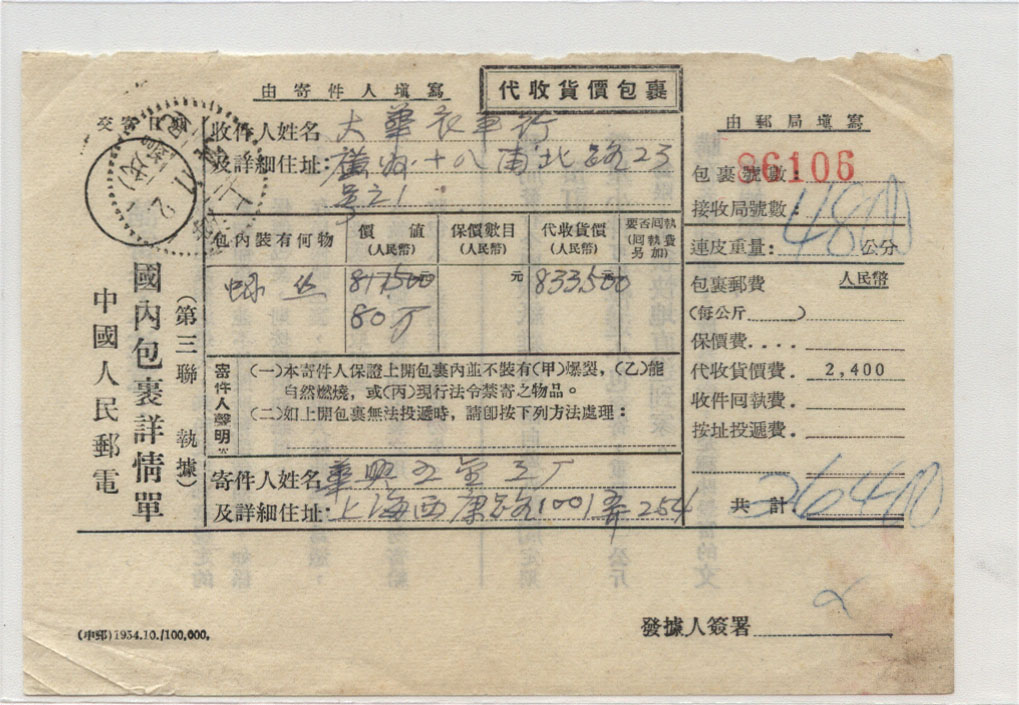 代收貨價包裹
由寄件人填寫
由郵局填寫
收件人姓名 大華衣車行
及詳細住址: 廣州十八甫北路23
號21
包裹號數: 86106
接收局號數:
連皮重量: 4800 公分
包內裝有何物
價 值 (人民幣)
保價數目 (人民幣)
代收貨價 (人民幣)
要否回執 (回執費另加)
螺丝 817500元 元 833500
80万
包裹郵費 人民幣
(每公斤 )
保價費....
代收貨價費. 2,400
收件回執費.
按址投遞費.
共計 26400
寄件人聲明
(一)本寄件人保證上開包裹內並不裝有(甲)爆裂,(乙)能
自然燃燒,或(丙)現行法令禁寄之物品。
(二)如上開包裹無法投遞時,請卽按下列方法處理:
寄件人姓名 華興五金工厂
及詳細住址: 上海西康路1001弄254
(第三聯 執據)
國內包裹詳情單
中國人民郵電
發據人簽署
(中郵)1954.10./100,000.